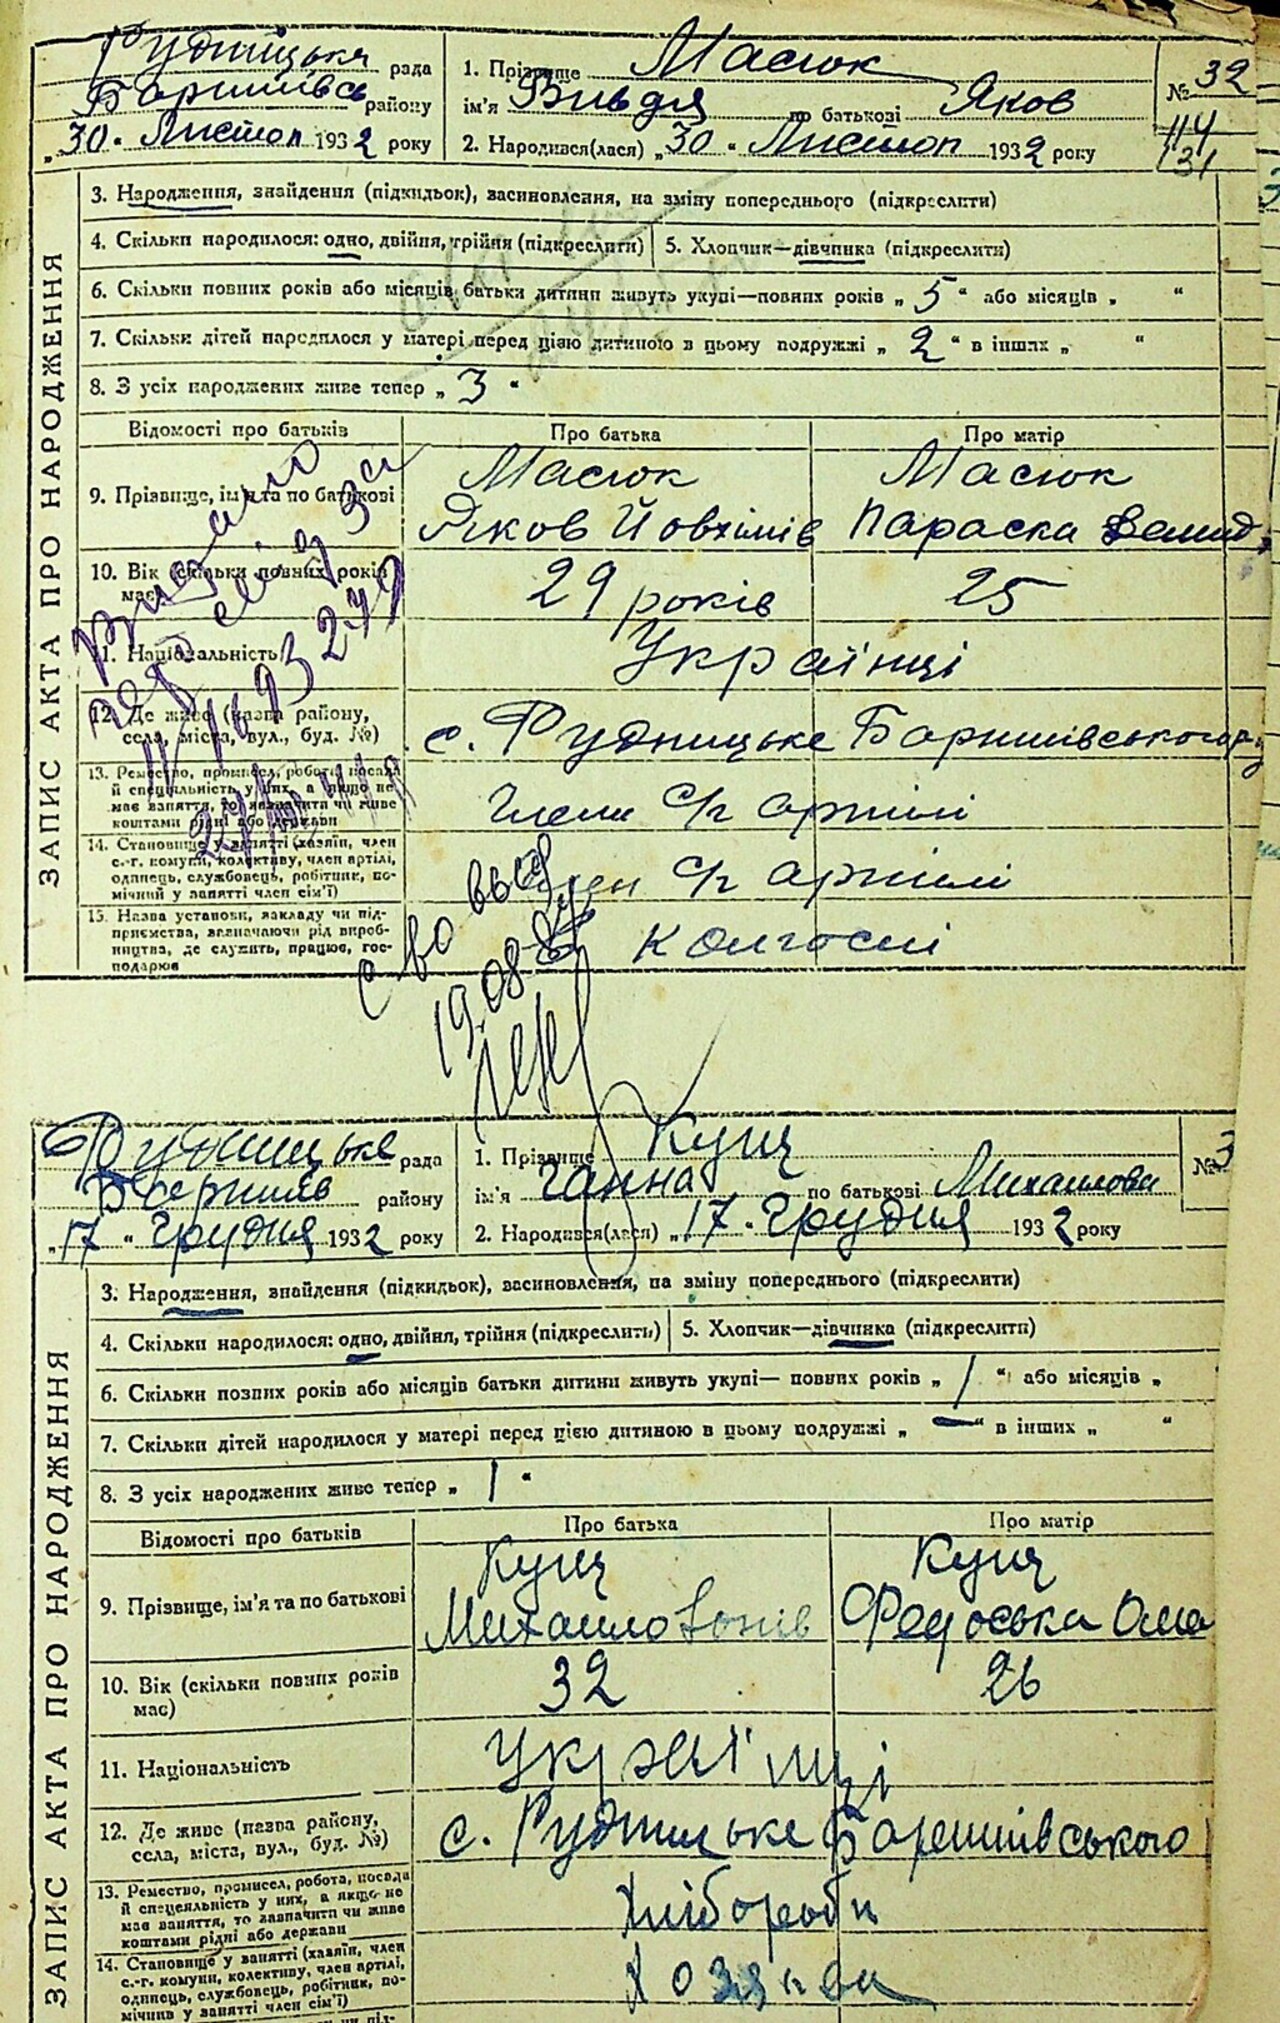 Рудницька рада
Баришівсь району
„30“ Листоп 1932 року
1. Прізвище Масюк
ім'я по батькові Яков
2. Народився(лася) „30“ Листоп 1932 року
№ 32
114
131
ЗАПИС АКТА ПРО НАРОДЖЕННЯ
3. Народження, знайдення (підкидьок), засиновлення, на зміну попереднього (підкреслити)
4. Скільки народилося: одно, двійня, трійня (підкреслити) 5. Хлопчик—дівчинка (підкреслити)
6. Скільки повних років або місяців батьки дитини живуть укупі—повних років „ 5 “ або місяців „ “
7. Скільки дітей народилося у матері перед цією дитиною в цьому подружжі „ 2 “ в інших „ “
8. З усіх народжених живе тепер „ 3 “
Відомості про батьків Про батька Про матір
9. Прізвище, ім'я та по батькові
Масюк Масюк
Яков Йовхимів Параска Демид
10. Вік (скільки повних років має)
29 років 25
11. Національність Українці
12. Де живе (назва району,
села, міста, вул., буд. №)
с. Рудницьке Баришівського р
13. Ремество, промисел, робота, посада
й спеціяльність у них, а якщо не
має заняття, то зазначити чи живе
коштами рідні або держави
Члени с/г артілі
14. Становище у занятті (хазяїн, член
с.-г. комуни, колективу, член артілі,
одинець, службовець, робітник, по-
мічний у занятті член сім'ї)
член с/г артілі
15. Назва установи, закладу чи під-
приємства, зазначаючи рід вироб-
ництва, де служить, працює, гос-
подарює
колгоспі
с во выд
19.08
Рудницьке рада
Баришів району
„17“ Грудня 1932 року
1. Прізвище Кущ
ім'я Ганна по батькові Михаилова
2. Народився(лася) „17“ Грудня 1932 року
№ 3
ЗАПИС АКТА ПРО НАРОДЖЕННЯ
3. Народження, знайдення (підкидьок), засиновлення, на зміну попереднього (підкреслити)
4. Скільки народилося: одно, двійня, трійня (підкреслить) 5. Хлопчик—дівчинка (підкреслити)
6. Скільки повних років або місяців батьки дитини живуть укупі— повних років „ 1 “ або місяців „
7. Скільки дітей народилося у матері перед цією дитиною в цьому подружжі „ — “ в інших „ “
8. З усіх народжених живе тепер „ 1 “
Відомості про батьків Про батька Про матір
9. Прізвище, ім'я та по батькові
Кущ Кущ
Михаило Федоська
10. Вік (скільки повних років
має)
32 26
11. Національність Українці
12. Де живе (назва району,
села, міста, вул., буд. №)
с. Рудницьке Баришівського
13. Ремество, промисел, робота, посада
й спецеяльність у них, а якщо не
має заняття, то зазначити чи живе
коштами рідні або держави
Хлібороби
14. Становище у занятті (хазяїн, член
с.-г. комуни, колективу, член артілі,
одинець, службовець, робітник, по-
мічний у занятті член сім'ї)
Хозяева